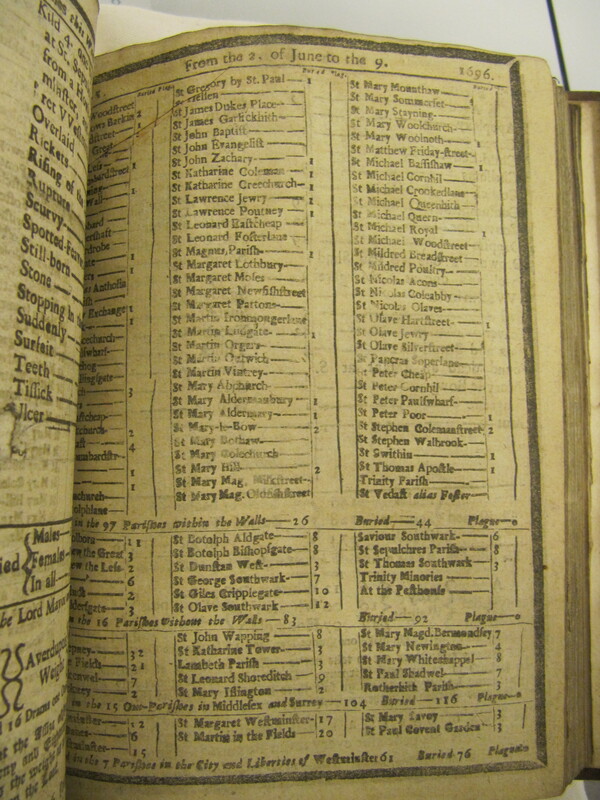 on this W
Kild 4. one
at St. Sepu
from a Ho
minster
ret VValle
Overlaid
Rickets
Rising of the
Rupture
Scurvy
Spotted-Feaver
Still-born
Stone
Stopping in
Suddenly
Surfeit
Teeth
Tissick
Ulcer
Males
Females
In all
the Lord Mayo
Averdupois
Weight
From the 2. of June to the 9. 1696.
Buried Plag.
St Gregory by St. Paul 1
St Hellen
St James Dukes Place
St James Garlickhith
St John Baptist
St John Evangelist
St John Zachary 1
St Katharine Coleman 1
St Katharine Creechurch 1
St Lawrence Jewry 1
St Lawrence Poutney 1
St Leonard Eastcheap
St Leonard Fosterlane
St Magnus Parish 1
St Margaret Lothbury
St Margaret Moses
St Margaret Newfishstreet
St Margaret Pattons
St Martin Ironmongerlane
St Martin Ludgate 1
St Martin Orgars
St Martin Outwich
St Martin Vintrey
St Mary Abchurch
St Mary Aldermanbury 1
St Mary Aldermary 1
St Mary-le-Bow 2
St Mary Bothaw
St Mary Colechurch
St Mary Hill 2
St Mary Mag. Milkstreet
St Mary Mag. Oldfishstreet
St Mary Mounthaw
St Mary Sommerset 1
St Mary Stayning
St Mary Woolchurch
St Mary Woolnoth 1
St Matthew Friday-street
St Michael Bassishaw 1
St Michael Cornhil
St Michael Crookedlane
St Michael Queenhith
St Michael Quern
St Michael Royal 1
St Michael Woodstreet
St Mildred Breadstreet
St Mildred Poultry
St Nicolas Acons
St Nicolas Coleabby
St Nicolas Olaves
St Olave Hartstreet 1
St Olave Jewry
St Olave Silverstreet
St Pancras Soperlane
St Peter Cheap
St Peter Cornhil
St Peter Paulswharf
St Peter Poor 1
St Stephen Colemanstreet 2
St Stephen Walbrook
St Swithin 1
St Thomas Apostle 1
Trinity Parish
St Vedast alias Foster
in the 97 Parishes within the Walls 26 Buried 44 Plague 0
St Botolph Aldgate 8
St Botolph Bishopsgate 8
St Dunstan West 3
St George Southwark 7
St Giles Cripplegate 10
St Olave Southwark 12
Saviour Southwark 6
St Sepulchres Parish 8
St Thomas Southwark 3
Trinity Minories
At the Pesthouse
in the 16 Parishes without the Walls 83 Buried 92 Plague 0
St John Wapping 8
St Katharine Tower 3
Lambeth Parish 3
St Leonard Shoreditch 9
St Mary Islington 2
St Mary Magd. Bermondsey 7
St Mary Newington 4
St Mary Whitechappel 8
St Paul Shadwel 7
Rotherhith Parish 3
in the 15 Out-Parishes in Middlesex and Surrey 104 Buried 116 Plague 0
St Margaret Westminster 17
St Martin in the Fields 20
St Mary Savoy 3
St Paul Covent Garden 3
in the 7 Parishes in the City and Liberties of Westminster 61 Buried 76 Plague 0